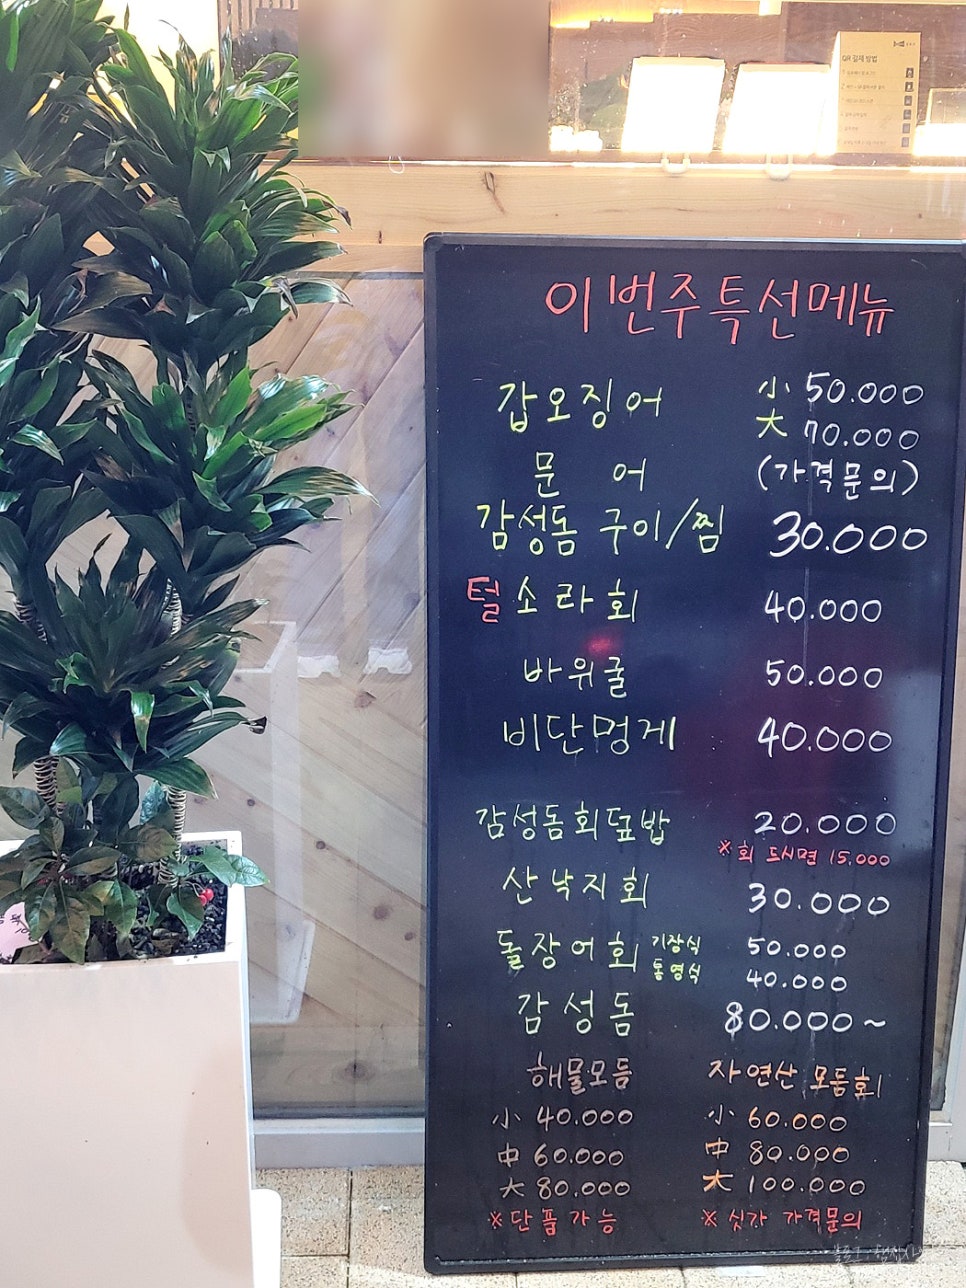 QR 결제 방법
이번주특선메뉴
갑오징어 小 50.000
大 70.000
문 어 (가격문의)
감성돔 구이/찜 30.000
털소라회 40.000
바위굴 50.000
비단멍게 40.000
감성돔회덮밥 20.000
※회 드시면 15.000
산낙지회 30.000
돌장어회 기장식 50.000
통영식 40.000
감성돔 80.000~
해물모듬 자연산 모듬회
小 40.000 小 60.000
中 60.000 中 80.000
大 80.000 大 100.000
※단품가능 ※싯가 가격문의